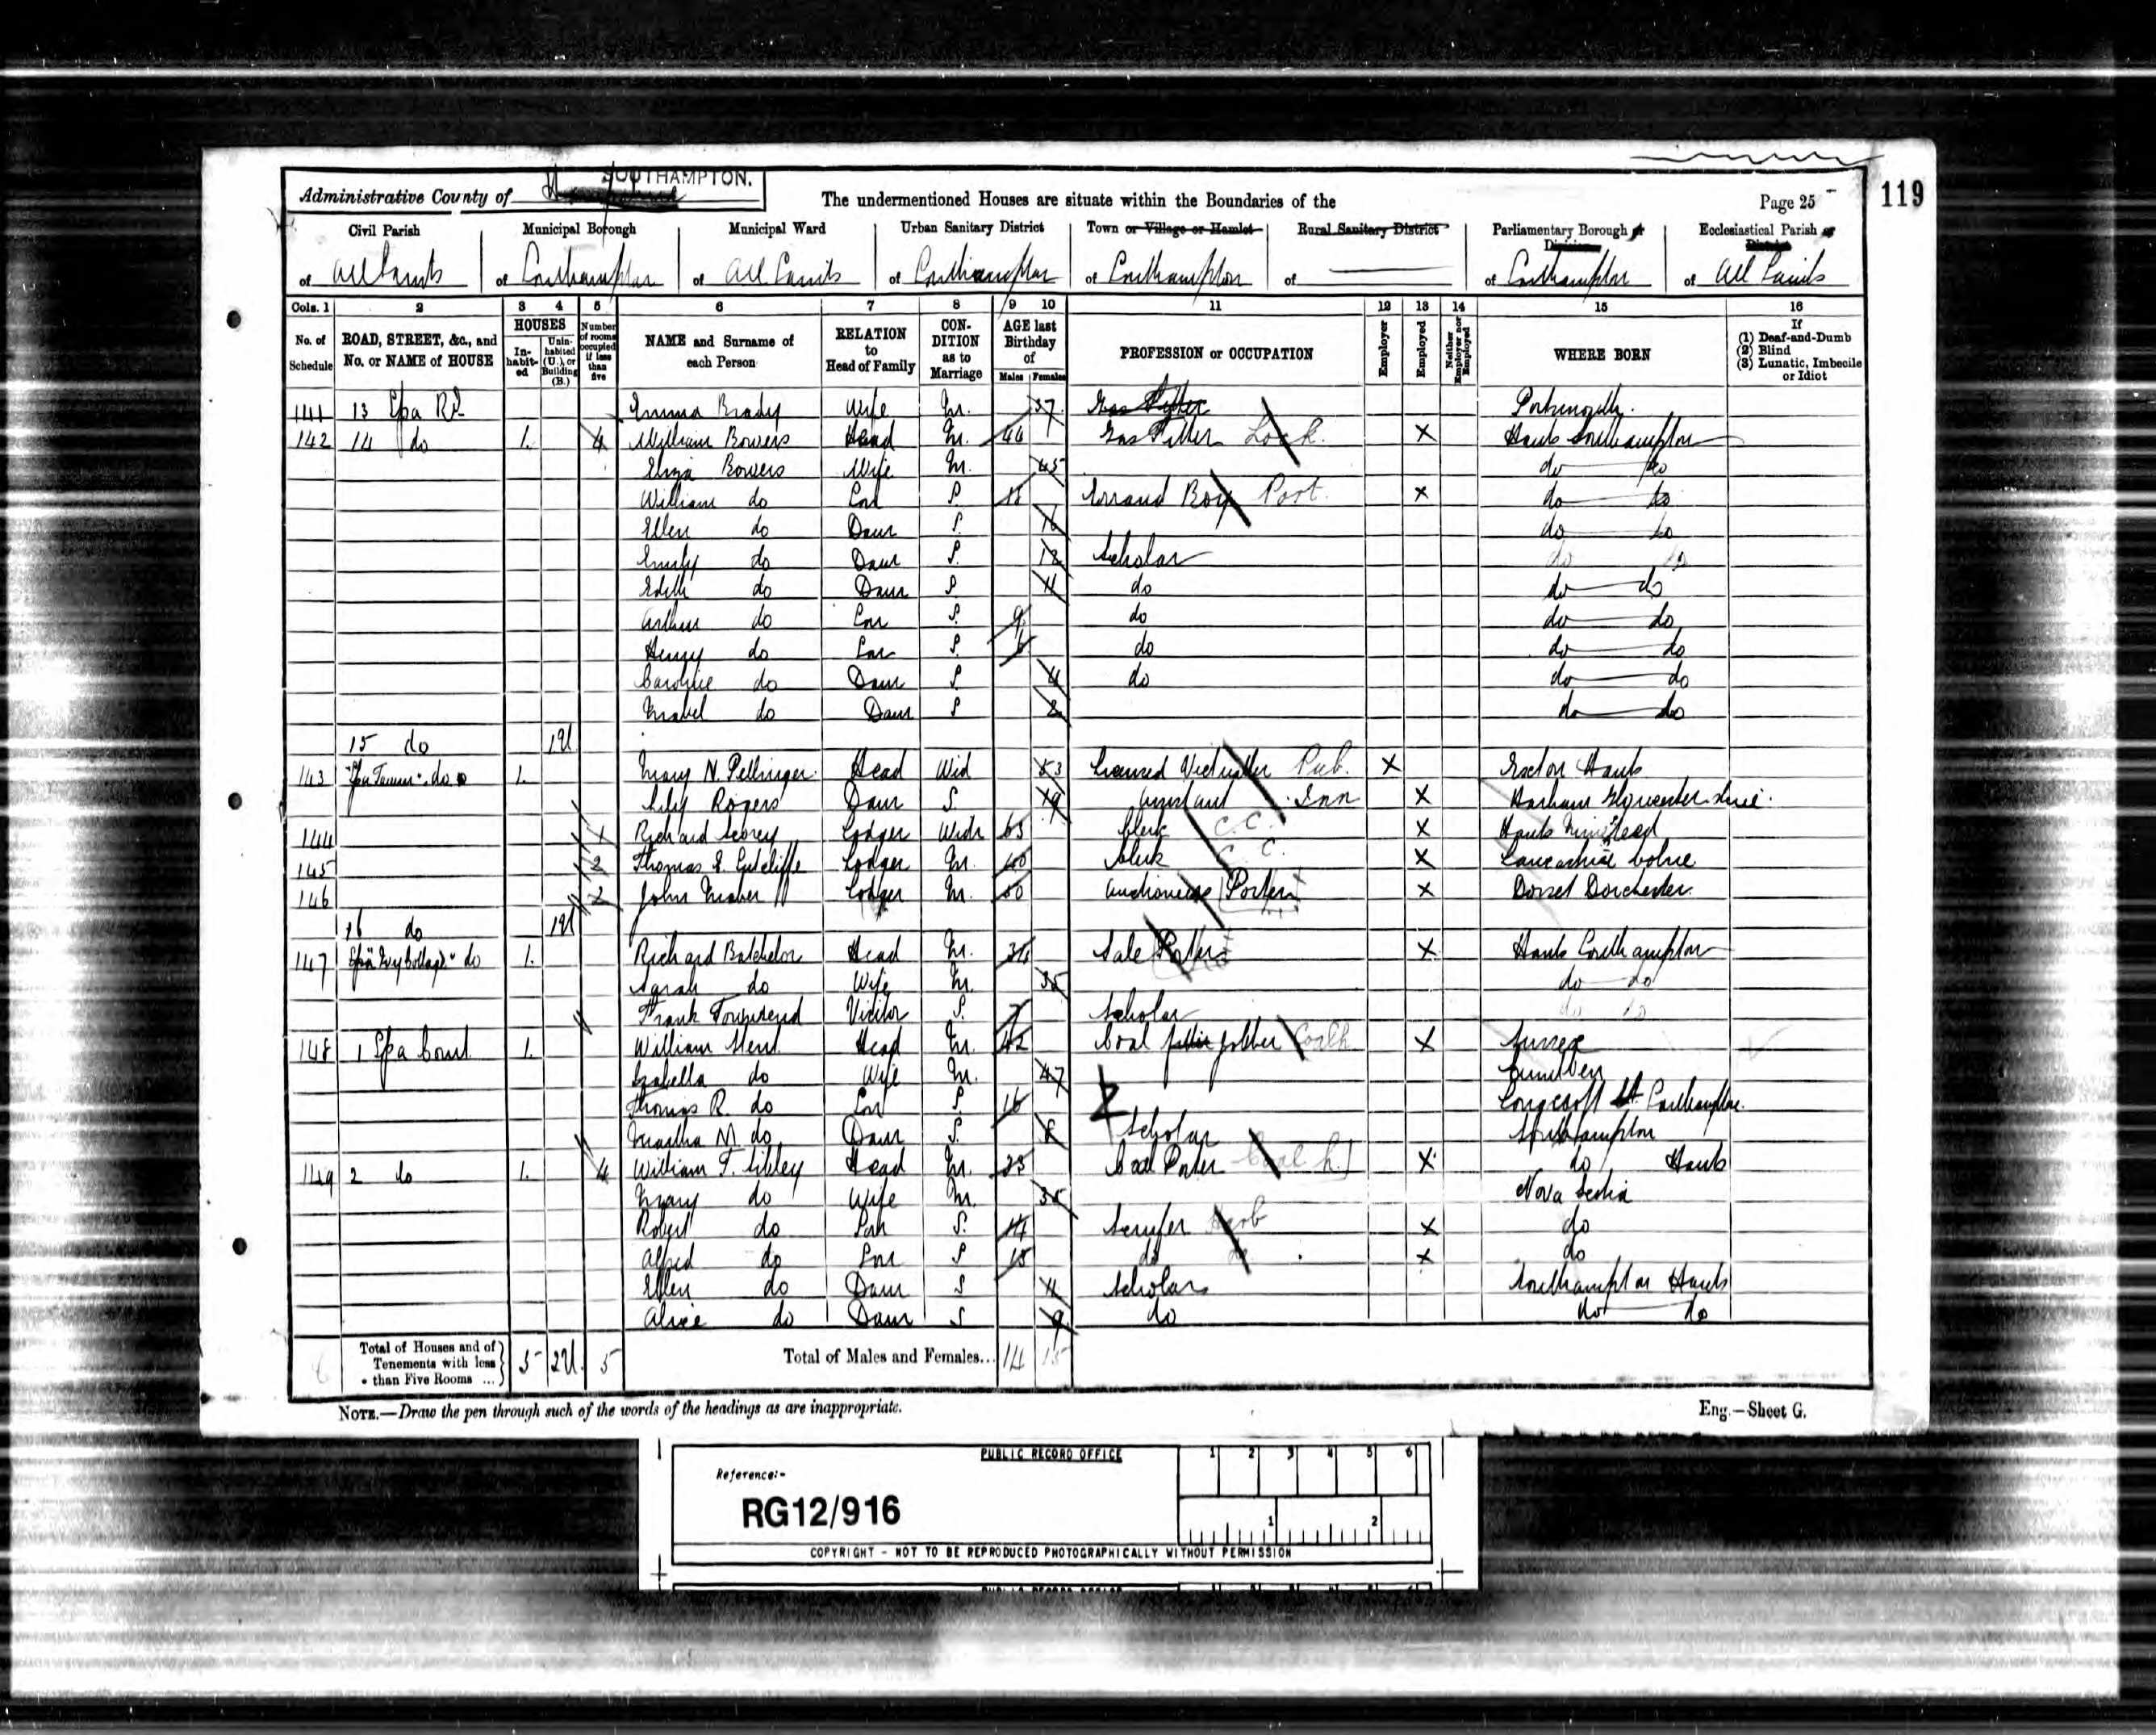 Administrative County of SOUTHAMPTON.
The undermentioned Houses are situate within the Boundaries of the
Page 25
119
Civil Parish of All Saints
Municipal Borough of Southampton
Municipal Ward of All Saints
Urban Sanitary District of Southampton
Town or Village or Hamlet of Southampton
Rural Sanitary District of
Parliamentary Borough or Division of Southampton
Ecclesiastical Parish or District of All Saints
Cols. 1 2 3 4 5 6 7 8 9 10 11 12 13 14 15 16
No. of Schedule
ROAD, STREET, &c., and No. or NAME of HOUSE
HOUSES
In-habit-ed
Unin-habited (U.), or Building (B.)
Number of rooms occupied if less than five
NAME and Surname of each Person
RELATION to Head of Family
CON-DITION as to Marriage
AGE last Birthday of
Males Females
PROFESSION or OCCUPATION
Employer
Employed
Neither Employer nor Employed
WHERE BORN
If
(1) Deaf-and-Dumb
(2) Blind
(3) Lunatic, Imbecile or Idiot
141 13 Spa Rd Emma Brady Wife M. 37
142 14 do 1. 4 William Bowers Head M. 44 Gas Fitter Lock. X Hants Southampton
Eliza Bowers Wife M. 45 do do
William do Son S. Errand Boy Port. X do do
Ellen do Daur S. 16 do do
Emily do Daur S. 12 Scholar do do
Edith do Daur S 11 do do do
Arthur do Son S. 9 do do do
Henry do Son S 6 do do do
Caroline do Daur S 4 do do do
Mabel do Daur S 2 do do
15 do 1U
143 "Spa Tavern" do 1. Mary N. Pellinger Head Wid 53 Licensed Victualler Pub. X Hants
Lily Rogers Daur S. 19 Assistant Inn X
144 1 Richard Scorey Lodger Widr 63 Clerk C.C. X Hants Minstead
145 2 Thomas S. Sutcliffe Lodger M. 40 Clerk C.C. X Lancashire Colne
146 2 John Maber Lodger M. 50 Auctioneers Porter X Dorset Dorchester
16 do 1U
147 "Ivy Cottage" do 1. Richard Batchelor Head M. 36 Sale Porter X Hants Southampton
Sarah do Wife M. 35 do do
Frank Townsend Visitor S. 7 Scholar do do
148 1 Spa Court 1. William Head M. 42 Coal jobber Coal h. X Sussex
Isabella do Wife M. 47
Thomas R. do Son S. 16 Longcroft St Southampton
Martha M do Daur S. 8 Scholar Southampton
149 2 do 1. 4 William F. Sibley Head M. Coal Porter Coal h. X do Hants
Mary do Wife M. 35 Nova Scotia
Robert do Son S. 14 X do
Alfred do Son S do X do
Ellen do Daur S 11 Scholar Southampton Hants
Alice do Daur S 9 do do do
Total of Houses and of Tenements with less than Five Rooms ... 5 2U. 5
Total of Males and Females... 14 15
NOTE.—Draw the pen through such of the words of the headings as are inappropriate.
Eng.—Sheet G.
PUBLIC RECORD OFFICE
1 2 3 4 5 6
Reference:-
RG12/916
1 2
COPYRIGHT - NOT TO BE REPRODUCED PHOTOGRAPHICALLY WITHOUT PERMISSION